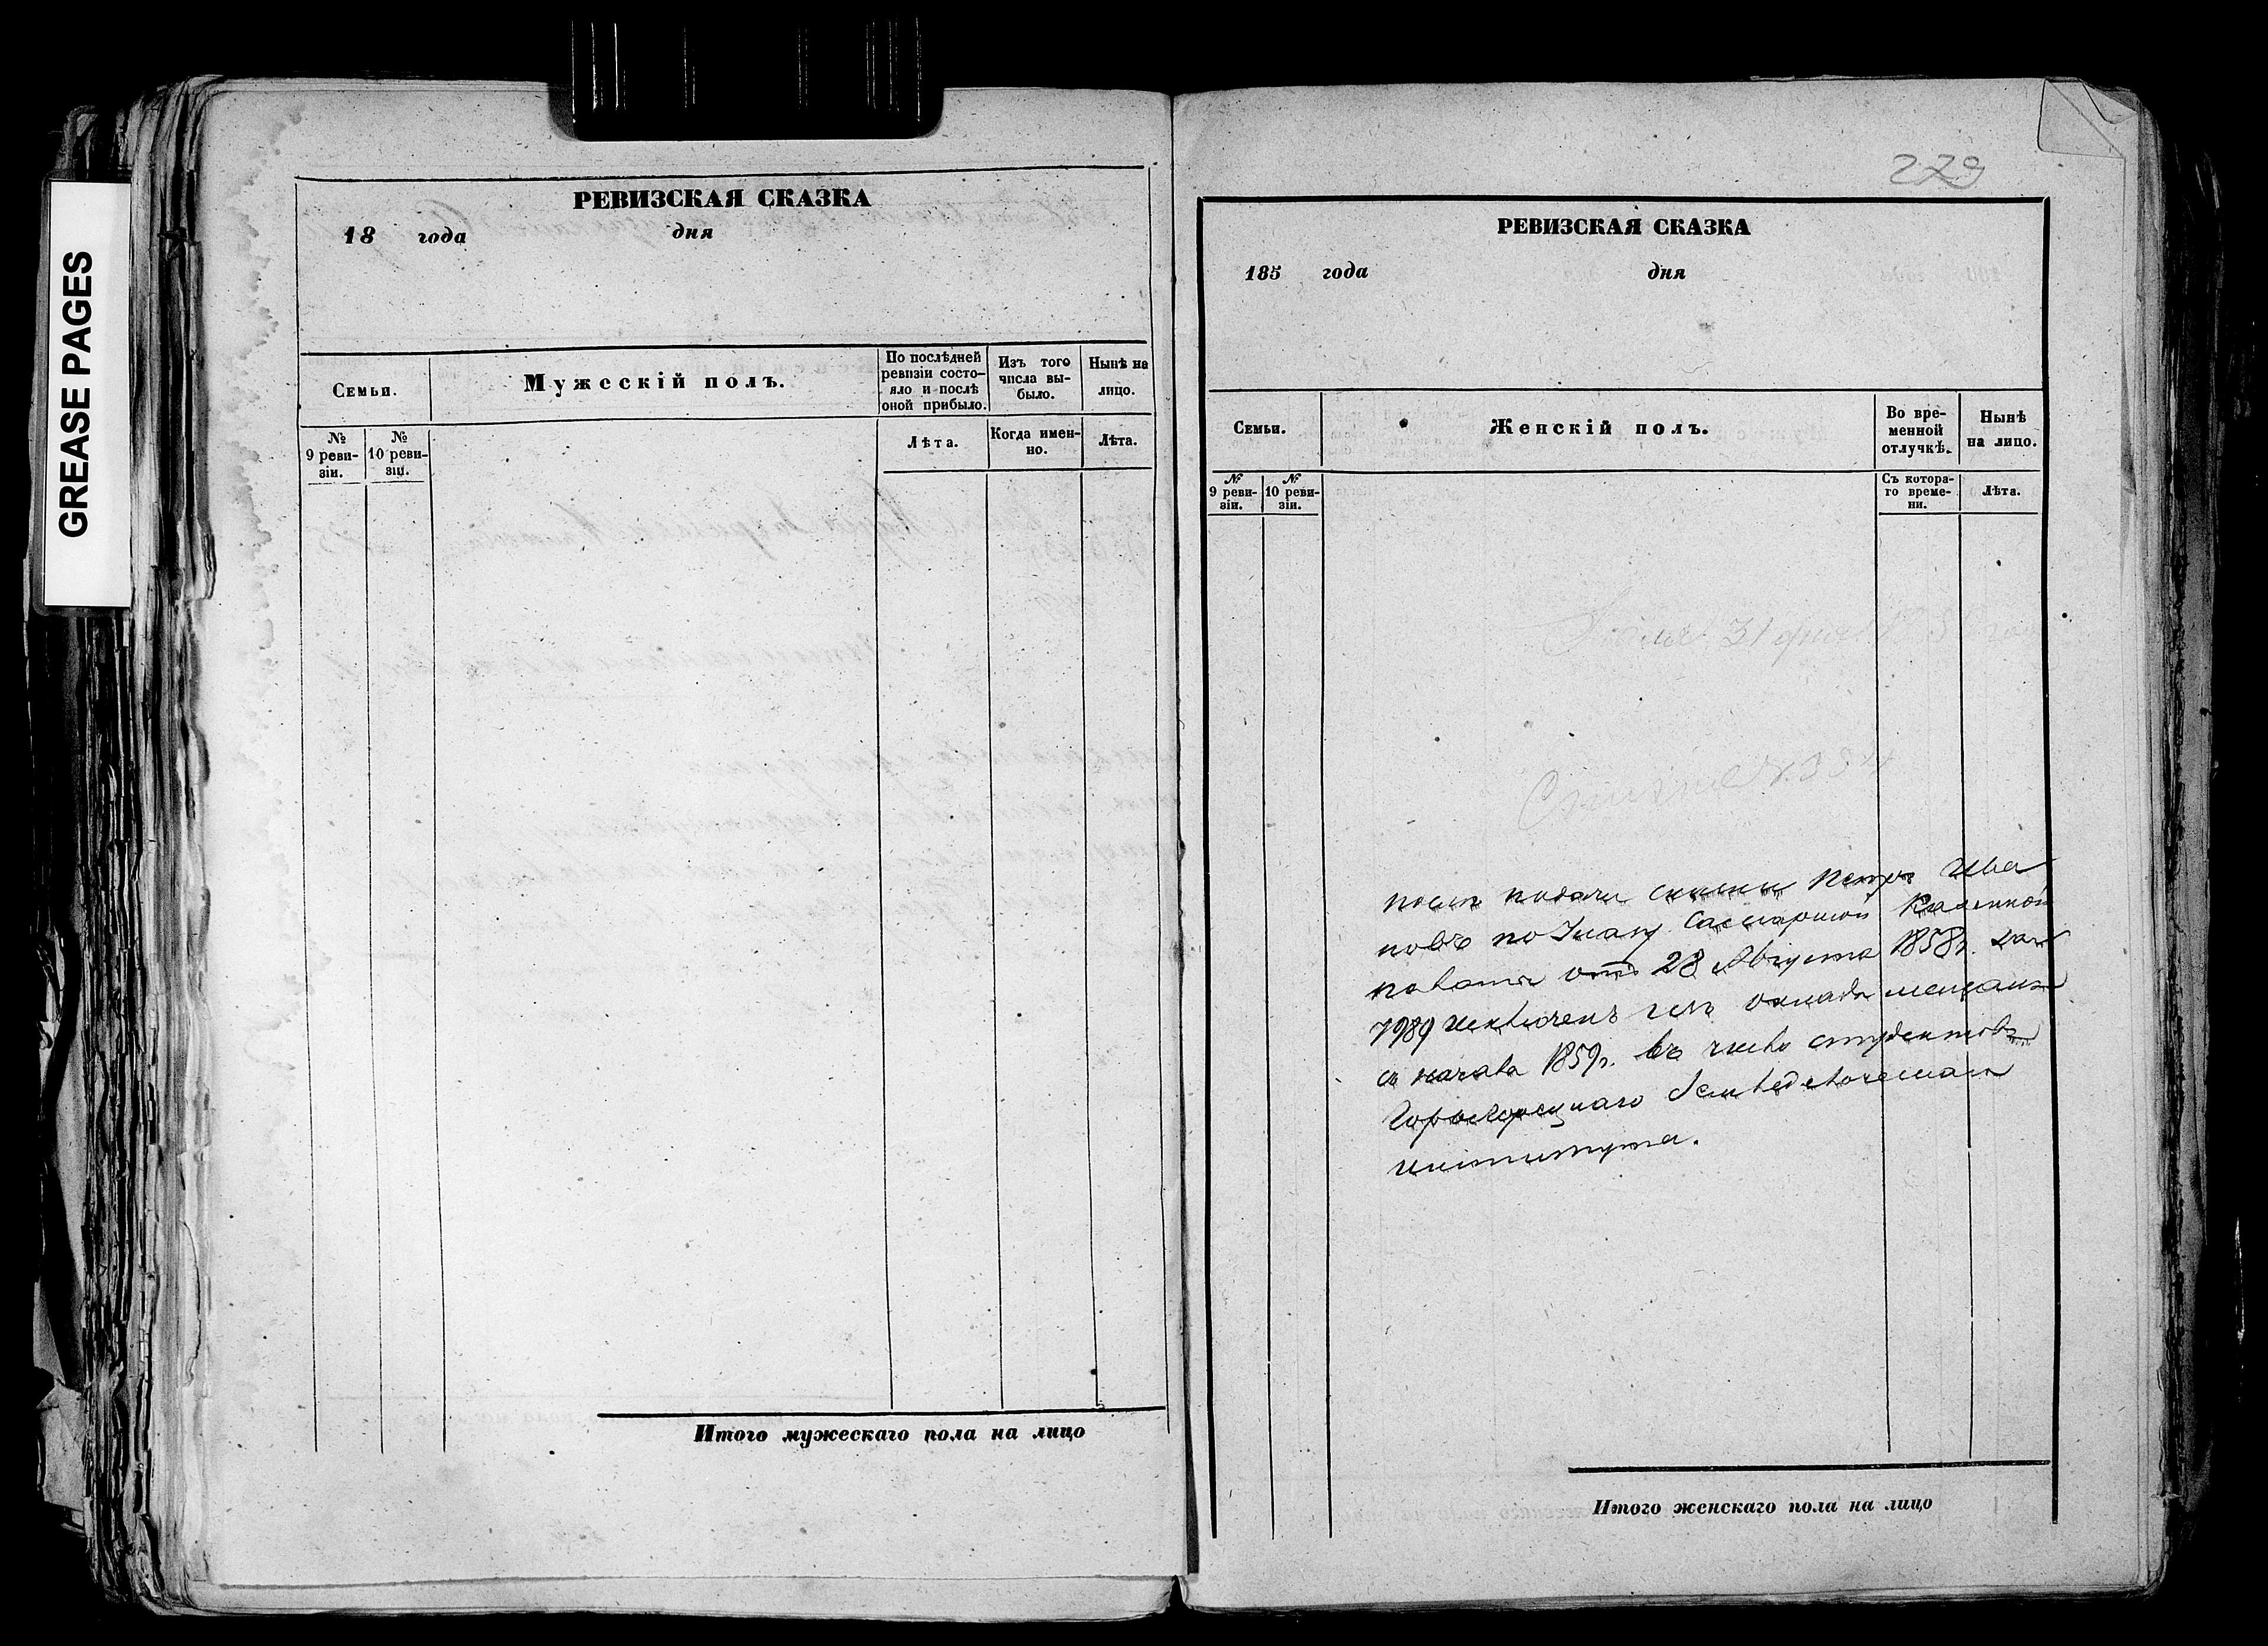 GREASE PAGES
РЕВИЗСКАЯ СКАЗКА
18 года дня
Семьи.
Мужескій полъ.
По послѣдней ревизіи состояло и послѣ оной прибыло.
Изъ того числа выбыло.
Нынѣ на лицо.
№ 9 ревизіи.
№ 10 ревизіи.
Лѣта.
Когда именно.
Лѣта.
Итого мужескаго пола на лицо
229
РЕВИЗСКАЯ СКАЗКА
185 года дня
Семьи.
Женскій полъ.
Во временной отлучкѣ.
Нынѣ на лицо.
№ 9 ревизіи.
№ 10 ревизіи.
Съ котораго времени.
Лѣта.
31
послѣ подачи сказки Петръ Ива
новъ по Указу Самарской Казенной
Палаты отъ 28 Августа 1858г. за №
7989 исключенъ изъ оклада мещанъ
съ начала 1859г. въ число студентовъ
Горыгорецкаго Земледѣльческаго
института.
Итого женскаго пола на лицо